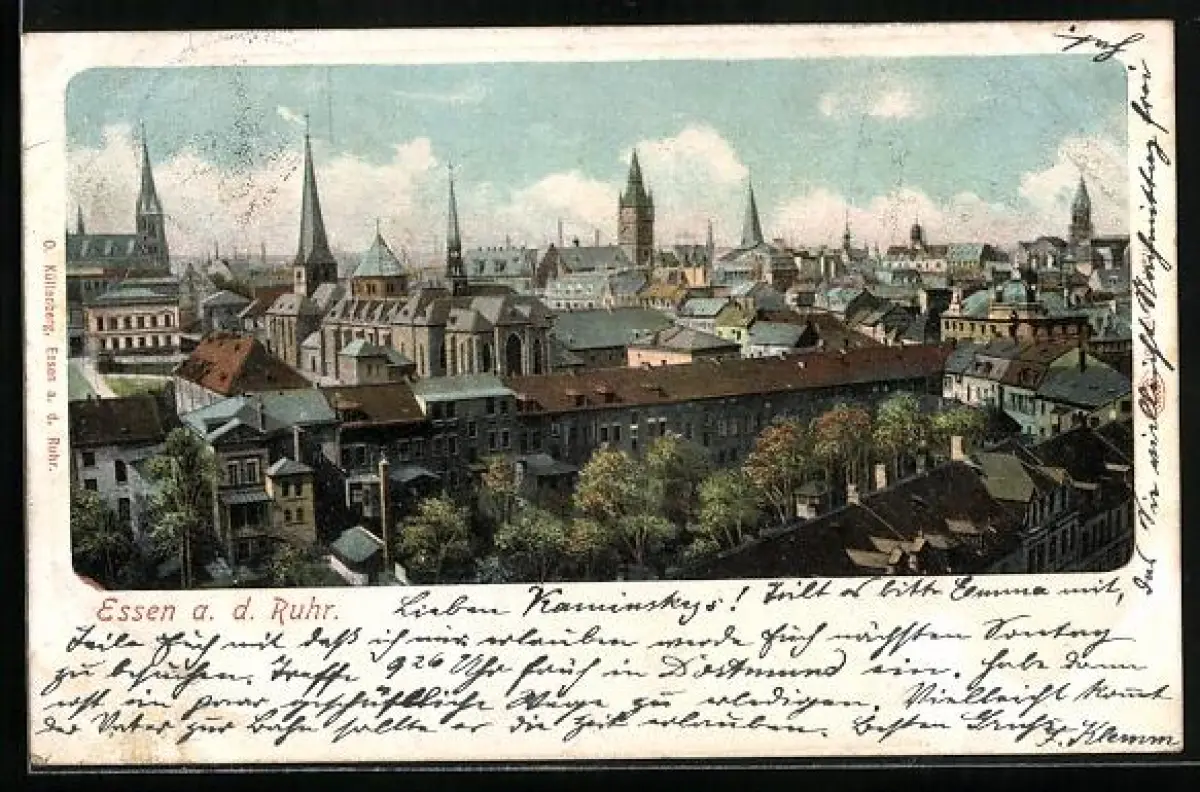 O. Küllenberg, Essen a. d. Ruhr.
Essen a. d. Ruhr.
Lieben Kaminskys! Teilt es bitte Emma mit,
Teile Euch mit daß ich mir erlauben werde Euch nächsten Sontag
zu besuchen. Treffe 9 26 Uhr früh in Dortmund ein. habe dann
erst ein paar geschäftliche Wege zu erledigen. Vielleicht komt
der Vater zur Bahn sollte er die Zeit erlauben. Besten Gruß
F. Klemm